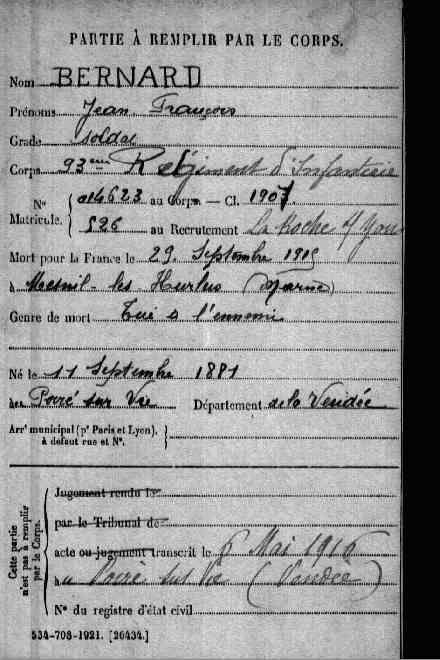 PARTIE À REMPLIR PAR LE CORPS.
Nom BERNARD
Prénoms Jean François
Grade Soldat
Corps 93ème Régiment d'Infanterie
N° 014623 au Corps. — Cl. 1907.
Matricule. 526 au Recrutement La Roche s/ Yon
Mort pour la France le 29. Septembre 1915
à Mesnil-les Hurlus (Marne)
Genre de mort Tué à l'ennemi
Né le 11 Septembre 1881
à Poiré sur Vie Département de la Vendée
Arr' municipal (p' Paris et Lyon),
à défaut rue et N°.
Cette partie
n'est pas à remplir
par le Corps.
Jugement rendu le
par le Tribunal de
acte ou jugement transcrit le 6 Mai 1916
à Poiré sur Vie (Vendée)
N° du registre d'état civil
534-708-1921. [26434.]